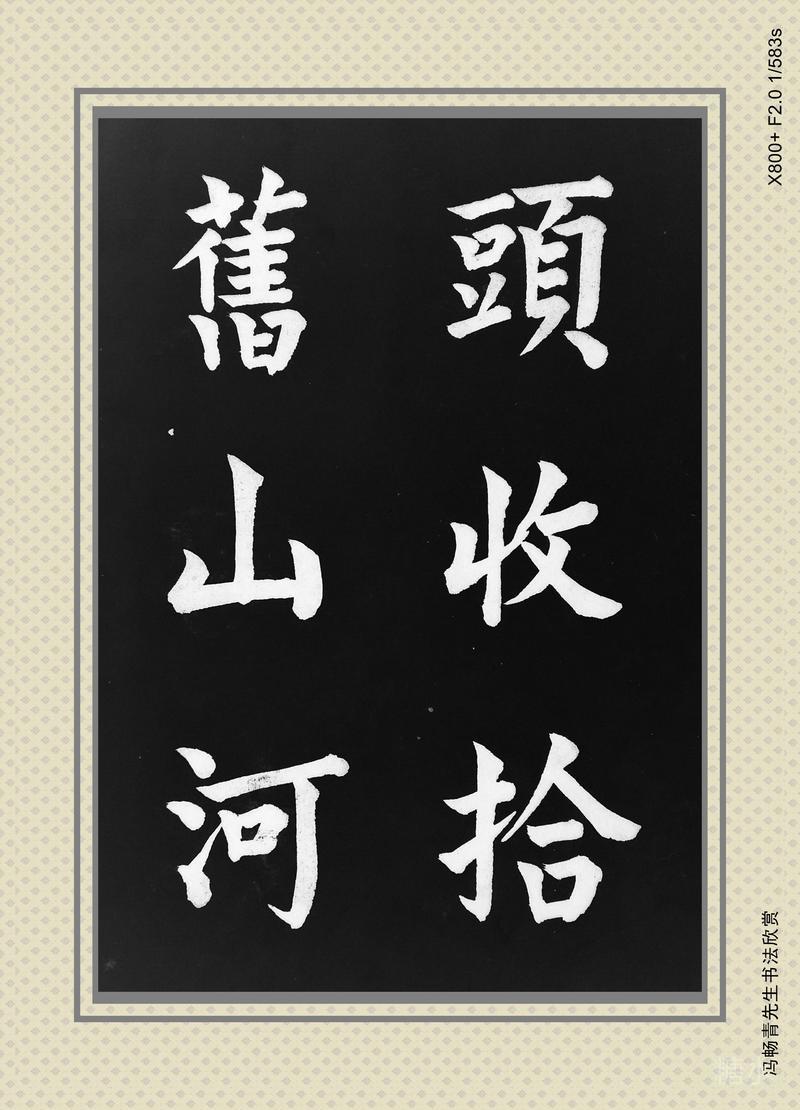 頭收拾
舊山河
X800+ F2.0 1/583s
冯畅青先生书法欣赏